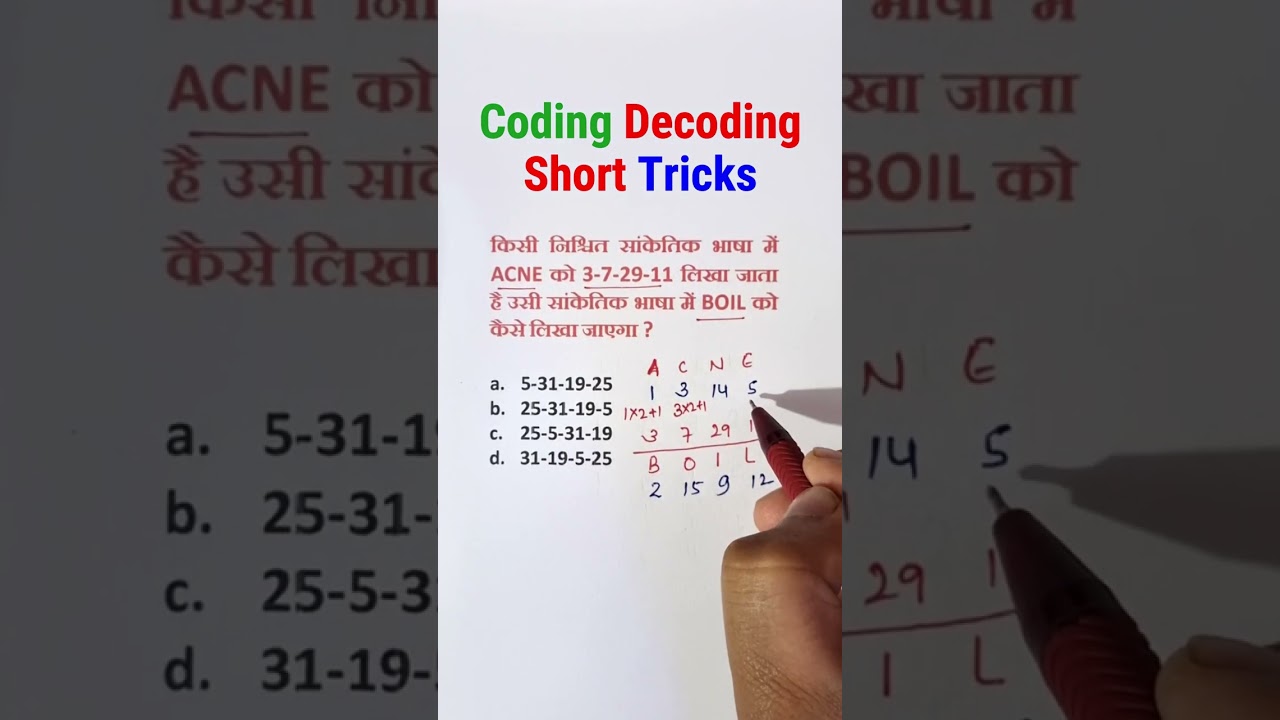 Coding Decoding
Short Tricks
किसी निश्चित सांकेतिक भाषा में
ACNE को 3-7-29-11 लिखा जाता
है उसी सांकेतिक भाषा में BOIL को
कैसे लिखा जाएगा ?
a. 5-31-19-25
b. 25-31-19-5
c. 25-5-31-19
d. 31-19-5-25
A C N E
1 3 14 5
1×2+1 3×2+1
3 7 29 1
B O I L
2 15 9 12